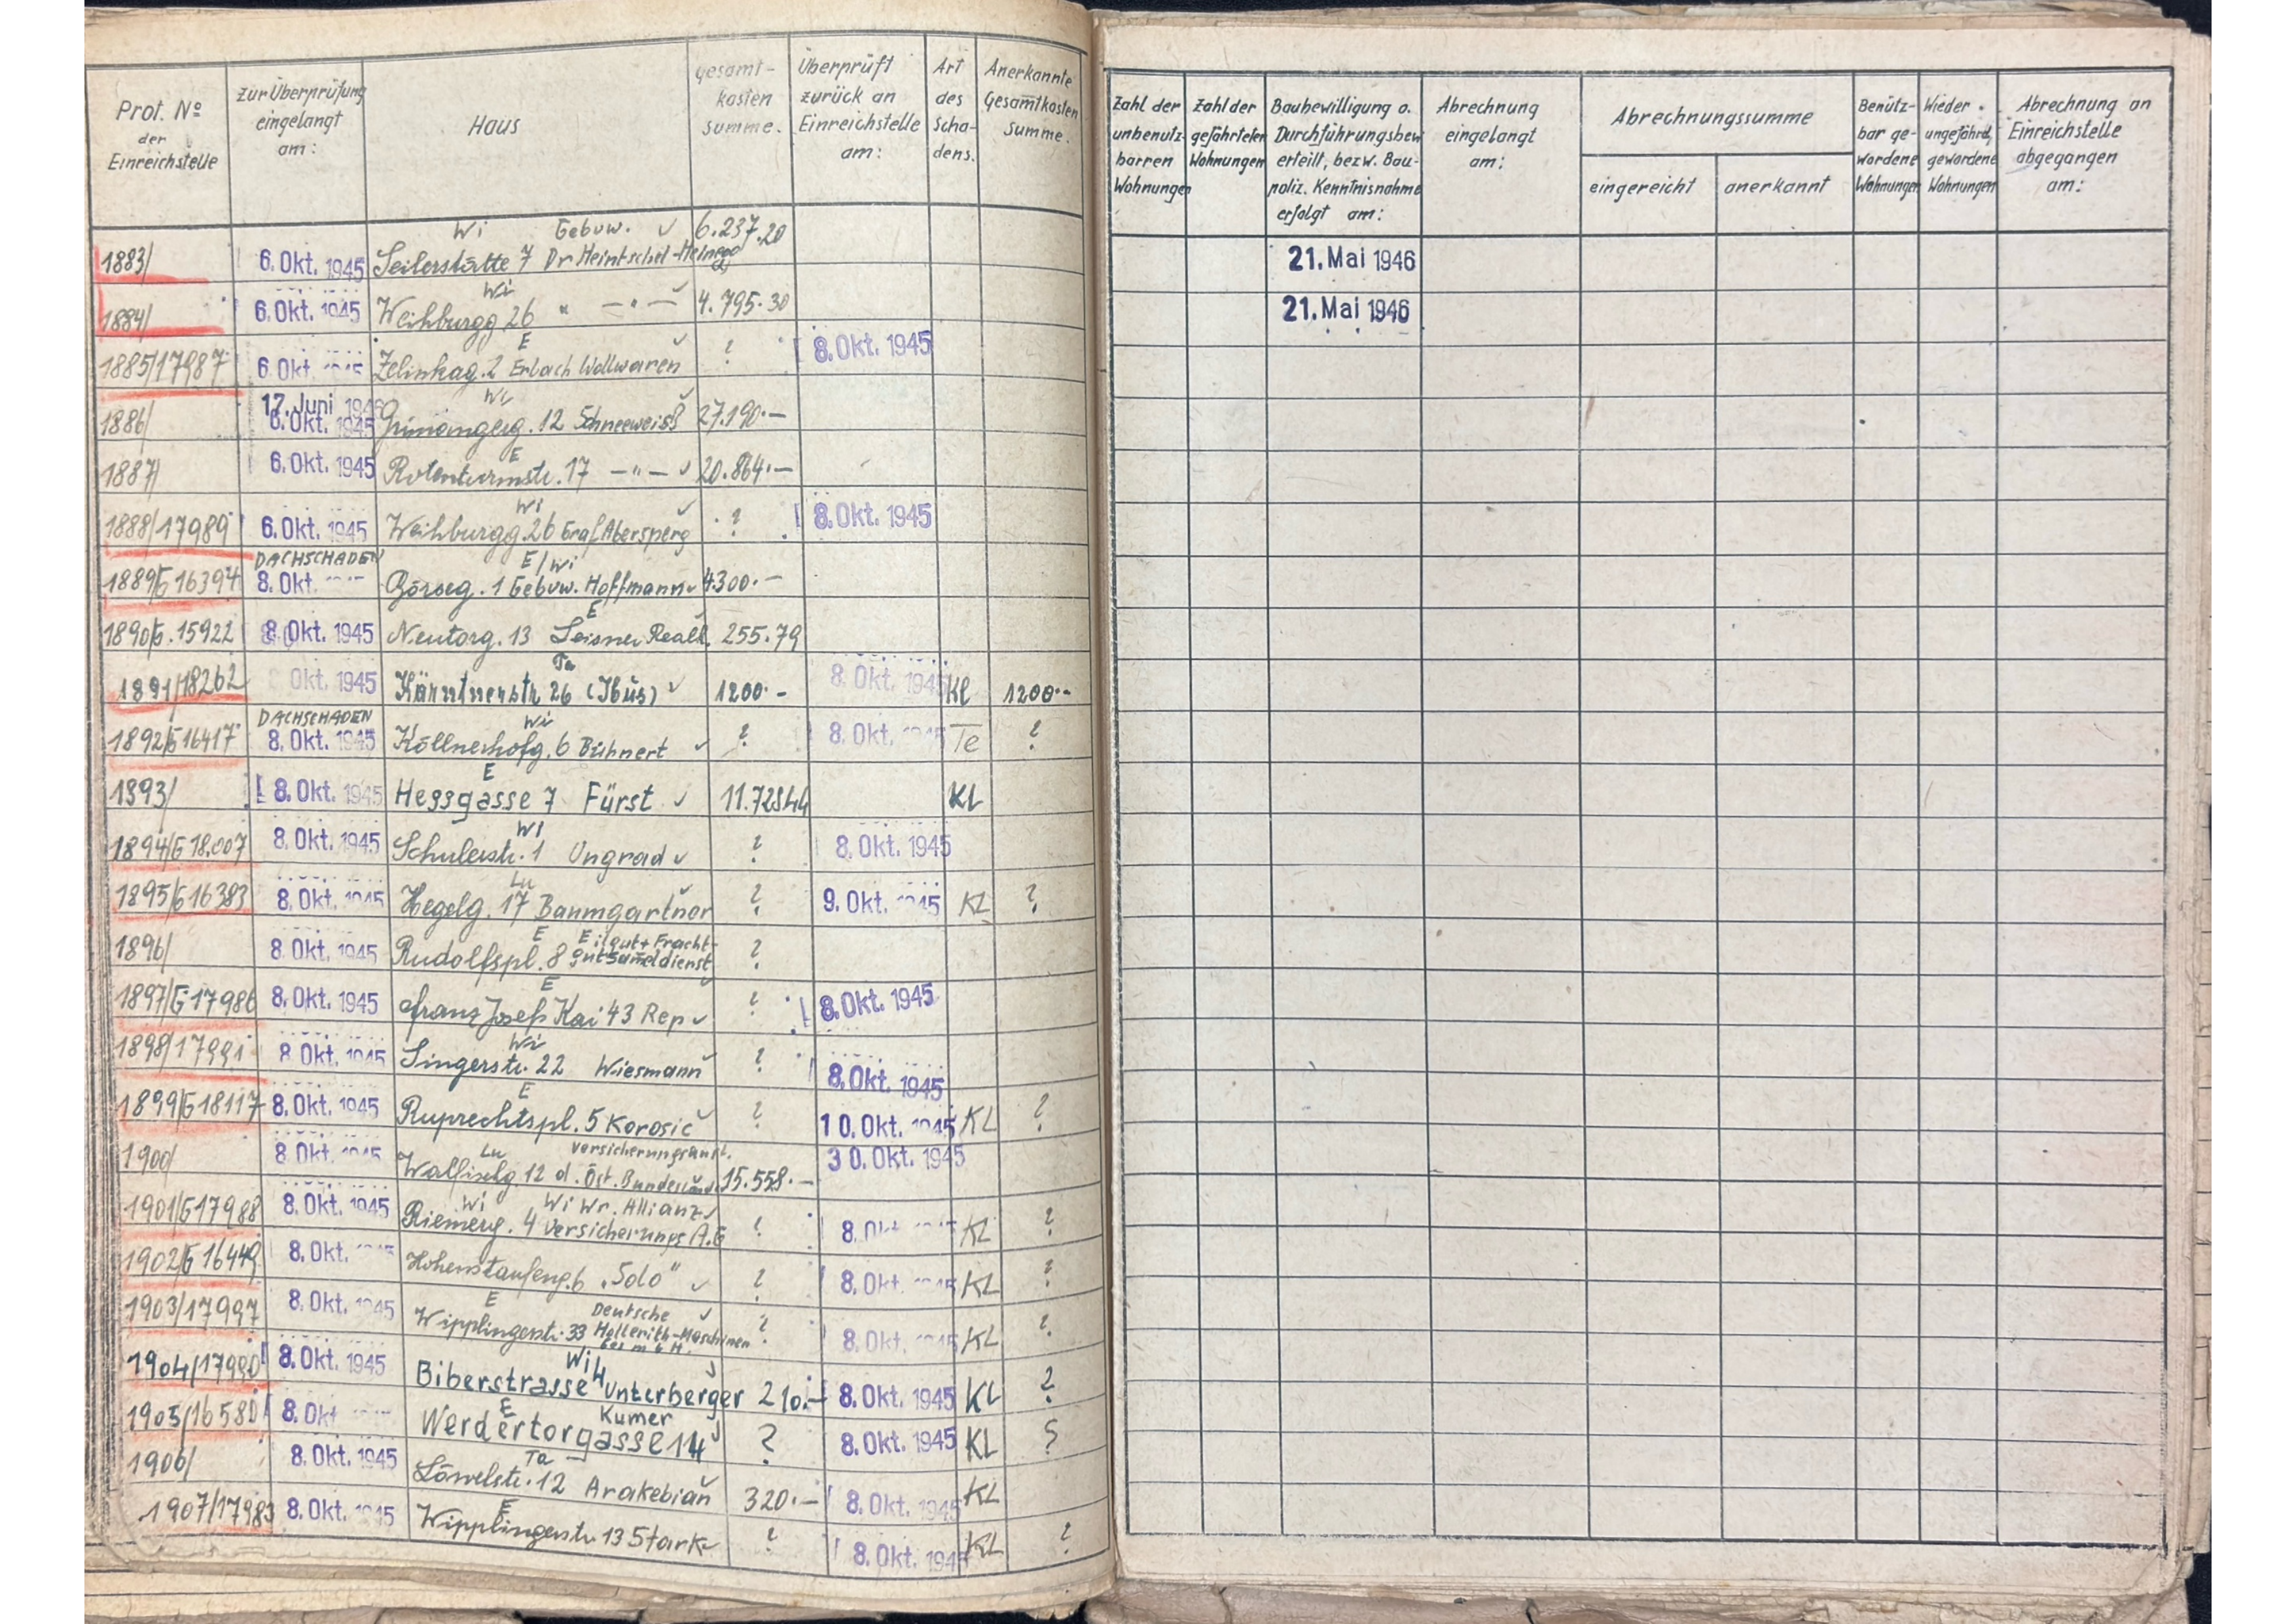 Prot. No der Einreichstelle
zur Überprüfung eingelangt am:
Haus
gesamt-kosten summe.
Überprüft zurück an Einreichstelle am:
Art des Scha-dens.
Anerkannte Gesamtkosten Summe.
Zahl der unbenutz-barren Wohnungen
Zahl der gefährteten Wohnungen
Baubewilligung o. Durchführungsbew erteilt, bezw. Bau-poliz. Kenntnisnahme erfolgt am:
Abrechnung eingelangt am:
Abrechnungssumme
eingereicht
anerkannt
Benütz-bar ge-wordene Wohnungen
Wieder ungefährd. gewordene Wohnungen
Abrechnung an Einreichstelle abgegangen am:
Wi Gebuw. ✓ 6.237.20
1883/ 6. Okt. 1945 Seilerstätte 7 Dr Heintschel-Heinegg 21. Mai 1946
Wi
1884/ 6. Okt. 1945 Weihburgg 26 " —"— ✓ 4.795.30 21. Mai 1946
E
1885/17987 6. Okt. 1945 Zelinkag. 2 Erlach Wollwaren ✓ ? 8. Okt. 1945
17. Juni 1946 Wi
1886/ 6. Okt. 1945 Grünangerg. 12 Schneeweiß ✓ 27.190.—
E
1887/ 6. Okt. 1945 Rotenturmstr. 17 —"— ✓ 20.864.—
Wi
1888/17989 6. Okt. 1945 Weihburgg. 26 Graf Abersperg ✓ ? 8. Okt. 1945
DACHSCHADEN E/Wi
1889/G 16394 8. Okt. Börseg. 1 Gebuw. Hoffmann ✓ 4300.—
E
1890/G. 15922 8. Okt. 1945 Neutorg. 13 Leisner Realk. 255.79
Ta
1891/18262 Okt. 1945 Kärntnerstr 26 (Ibus) ✓ 1200.- 8. Okt. 1945 Kl 1200.-
DACHSCHADEN Wi
1892/G 16417 8. Okt. 1945 Köllnerhofg. 6 Bühnert ✓ ? 8. Okt. 1945 Te ?
E
1893/ 8. Okt. 1945 Hessgasse 7 Fürst ✓ 11.728.44 KL
Wi
1894/G 18.007 8. Okt. 1945 Schulerstr. 1 Ungrad ✓ ? 8. Okt. 1945
Lu
1895/G 16383 8. Okt. 1945 Hegelg. 17 Baumgartner ✓ ? 9. Okt. 1945 KL ?
E Eilgut + Fracht-
1896/ 8. Okt. 1945 Rudolfspl. 8 gutsameldienst ?
E
1897/G 17986 8. Okt. 1945 Franz Josefs Kai 43 Rep ✓ ? 8. Okt. 1945
Wi
1898/17991 8. Okt. 1945 Singerstr. 22 Wiesmann ✓ ? 8. Okt. 1945
E
1899/G 18117 8. Okt. 1945 Ruprechtspl. 5 Korosic ✓ ? 10. Okt. 1945 KL ?
Lu Versicherungsanst.
1900/ 8. Okt. 1945 Walfischg. 12 d. Öst. Bundesländ. 15.558.— 30. Okt. 1945
Wi Wi Wr. Allianz ✓
1901/G 17988 8. Okt. 1945 Riemerg. 4 Versicherungs A.G ? 8. Okt. 1945 KL ?
1902/G 16449 8. Okt. 1945 Hohenstaufeng. 6 „Solo" ✓ ? 8. Okt. 1945 KL ?
E Deutsche ✓
1903/17997 8. Okt. 1945 Wipplingerstr. 33 Hollerith-Maschinen ? 8. Okt. 1945 KL ?
Ges m b H.
Wi
1904/17990 8. Okt. 1945 Biberstrasse 4 Unterberger ✓ 210.— 8. Okt. 1945 KL ?
E Kumer
1905/16580 8. Okt Werdertorgasse 14 ✓ ? 8. Okt. 1945 KL ?
Ta
1906/ 8. Okt. 1945 Löwelstr. 12 Arakebian ✓ 320.— 8. Okt. 1945 KL
E
1907/17983 8. Okt. 1945 Wipplingerstr 13 Stark ✓ ? 8. Okt. 1945 KL ?